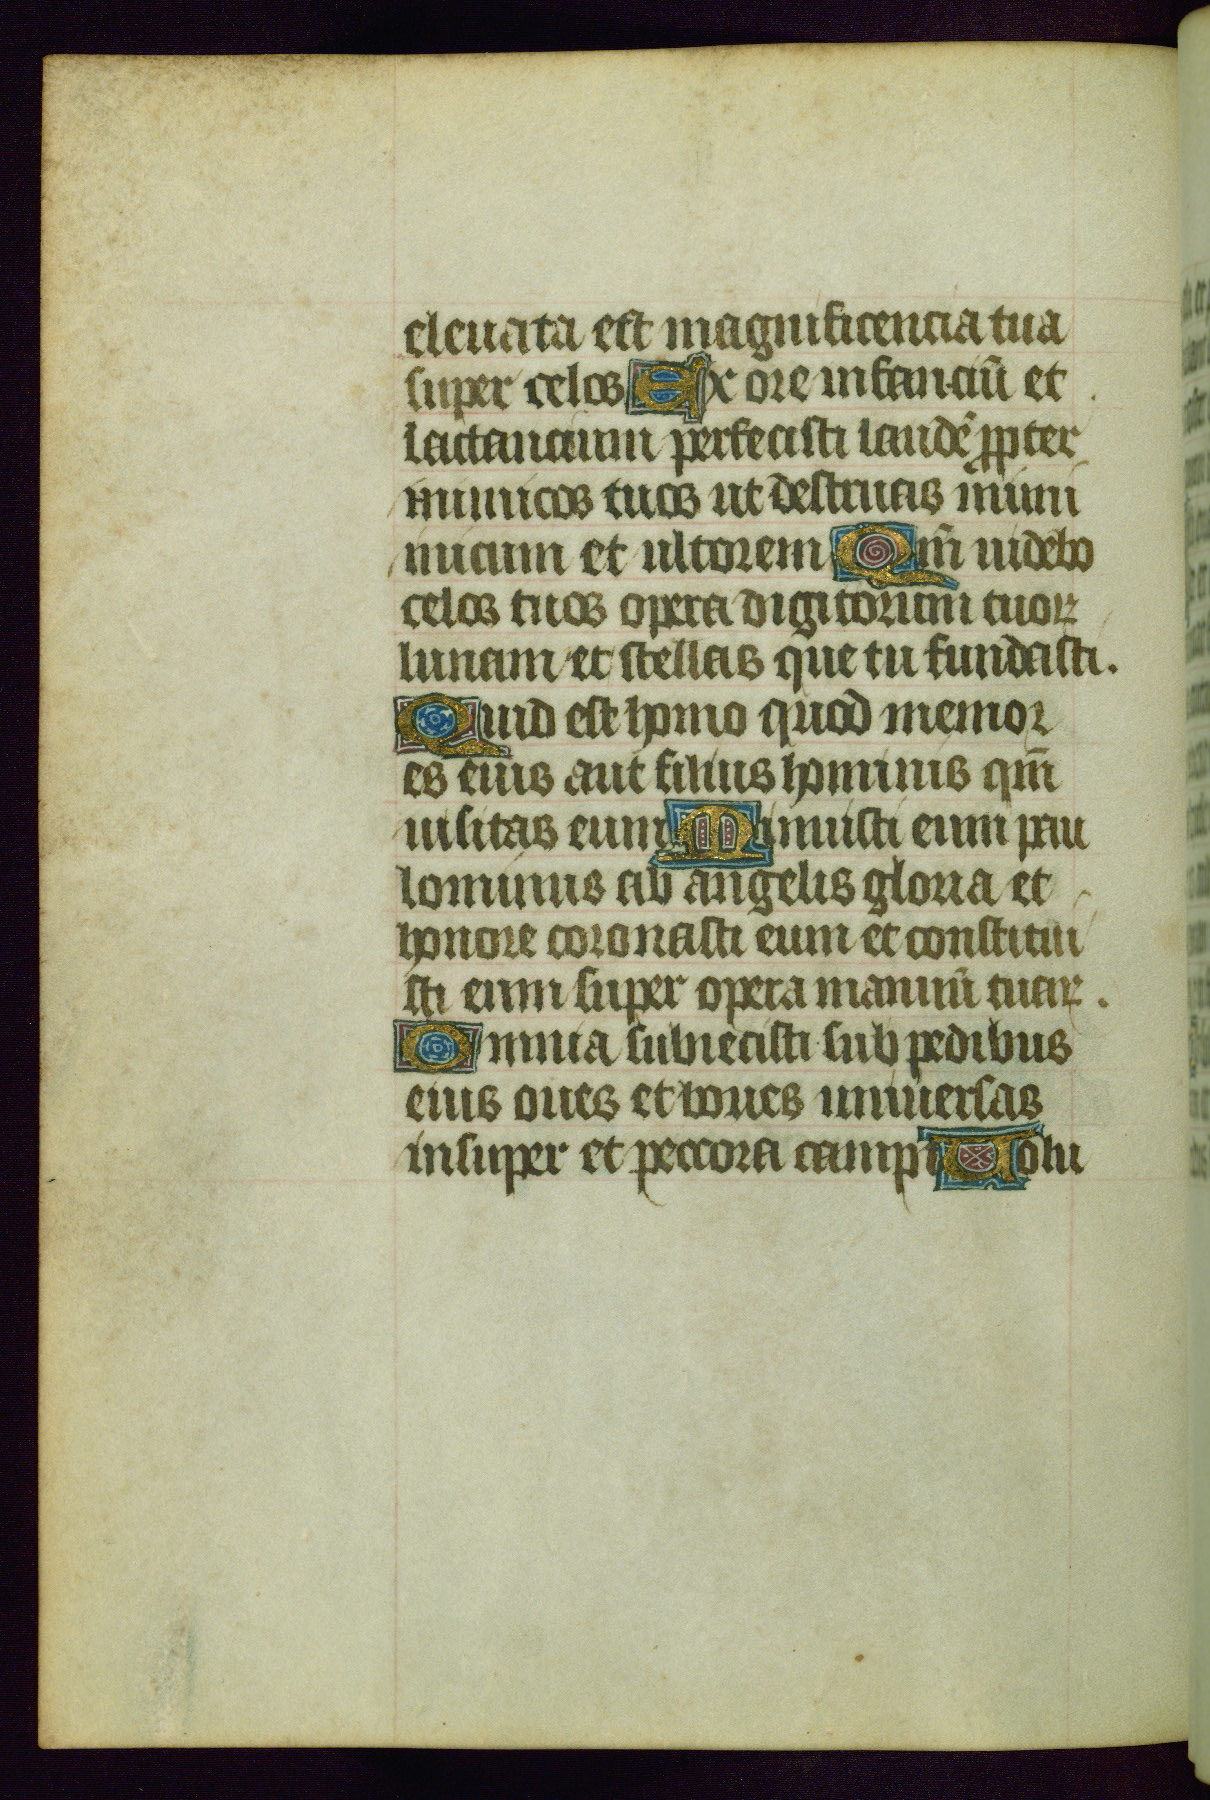 eleuata est magnificencia tua
super celos Ex ore infanciū et
lactancium perfecisti laudē ꝓpter
inimicos tuos ut destruas inimi
micum et ultorem Qm̄ uidebo
celos tuos opera digitorum tuoꝝ
lunam et stellas que tu fundasti.
Quid est homo quod memor
es eius aut filius hominis qm̄
uisitas eum Minuisti eum pau
lominus ab angelis gloria et
honore coronasti eum et constitui
sti eum super opera manuū tuaꝝ.
Omnia subiecisti sub pedibus
eius oues et boues uniuersas
insuper et peccora campi Uolu